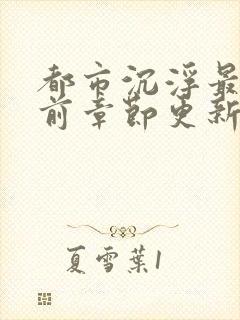 都市沉浮最
前章節更新
夏雪葉1